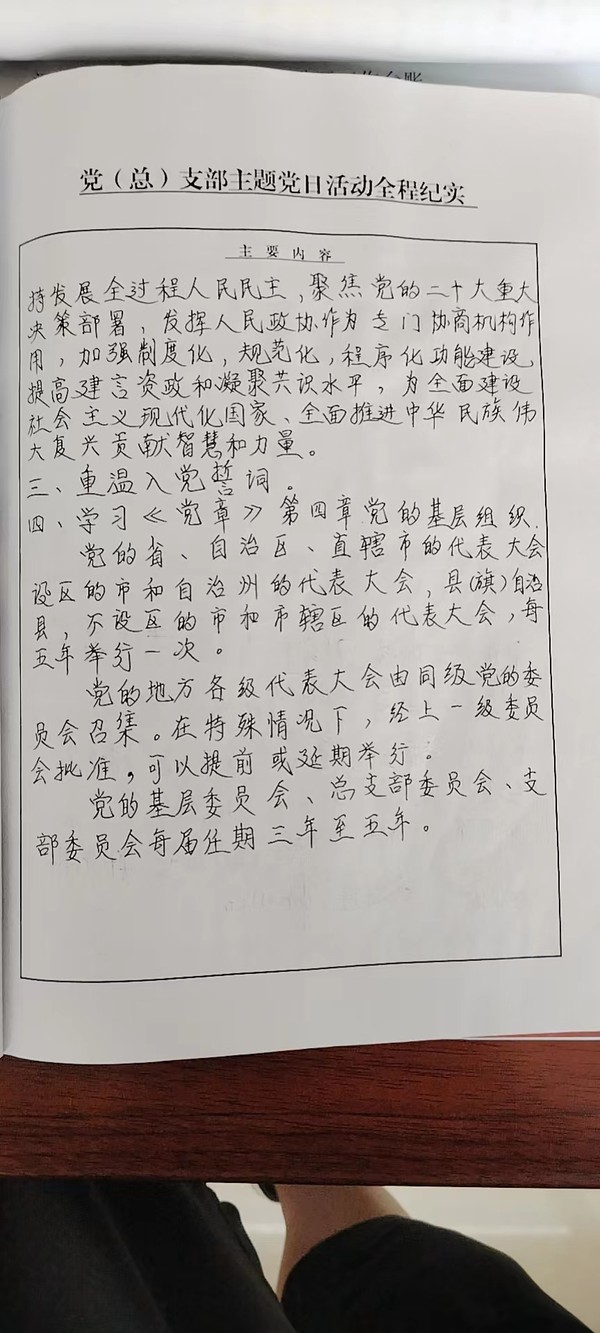 党（总）支部主题党日活动全程纪实
主要内容
持发展全过程人民民主，聚焦党的二十大重大
决策部署，发挥人民政协作为专门协商机构作
用，加强制度化，规范化，程序化功能建设，
提高建言资政和凝聚共识水平，为全面建设
社会主义现代化国家、全面推进中华民族伟
大复兴贡献智慧和力量。
三、重温入党誓词。
四、学习《党章》第四章党的基层组织.
党的省、自治区、直辖市的代表大会
设区的市和自治州的代表大会，县(旗)自治
县，不设区的市和市辖区的代表大会，每
五年举行一次。
党的地方各级代表大会由同级党的委
员会召集。在特殊情况下，经上一级委员
会批准，可以提前或延期举行。
党的基层委员会、总支部委员会、支
部委员会每届任期三年至五年。